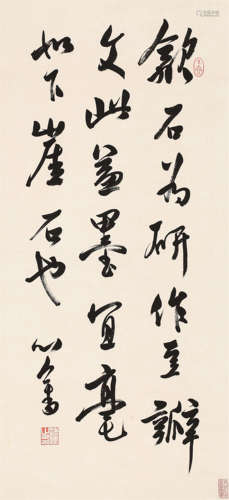 歙石为研作豆瓣
文此益墨宜毫
如下崖石也 心畬